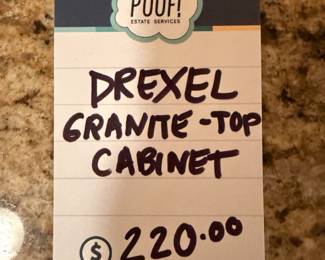 POOF!
ESTATE SERVICES
DREXEL
GRANITE-TOP
CABINET
$ 220.00